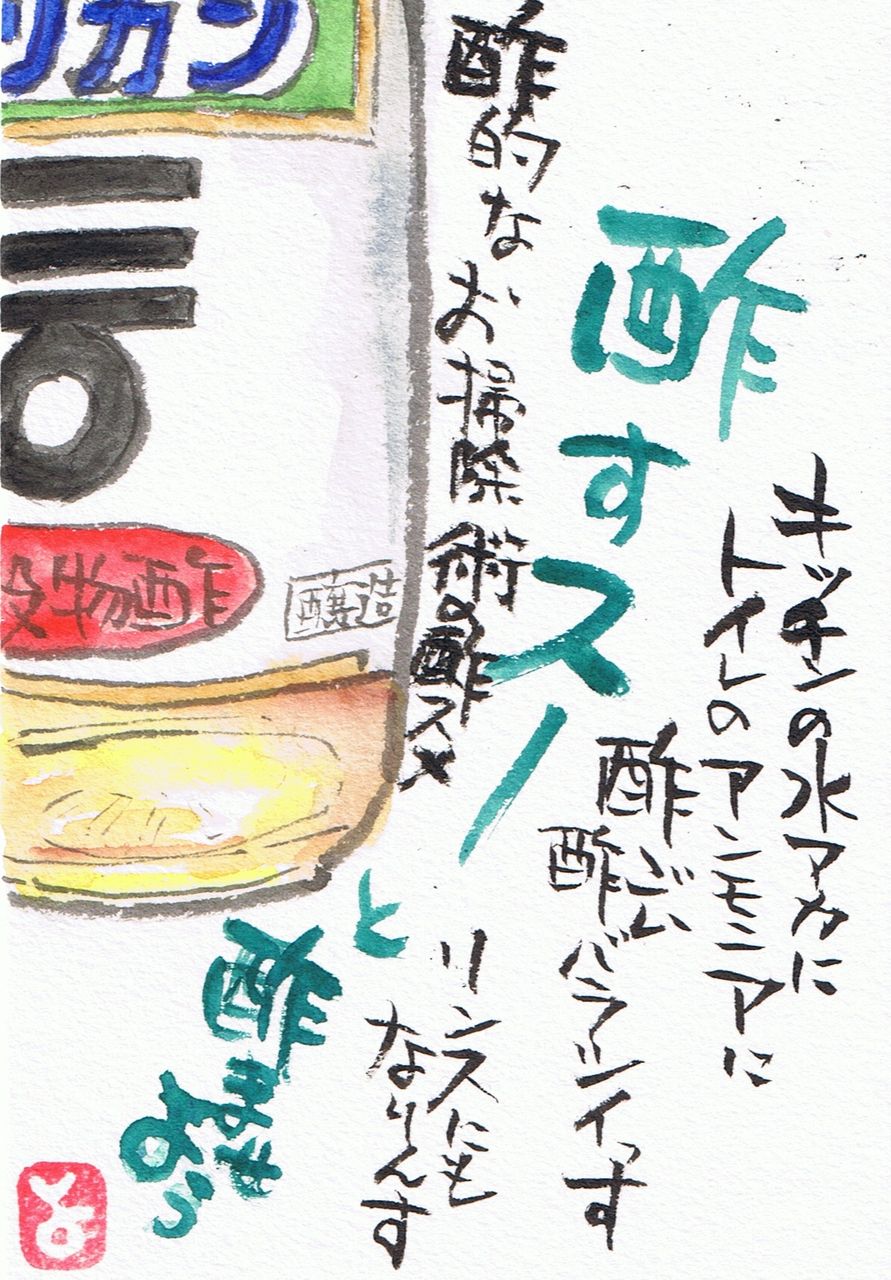 キッチンの水アカに
トイレのアンモニアに
酢バラシイっす
酢すスーと
酢ませよう
リンスにも
なりんす
酢的なお掃除術の酢スメ
リカン
物酢
醸造